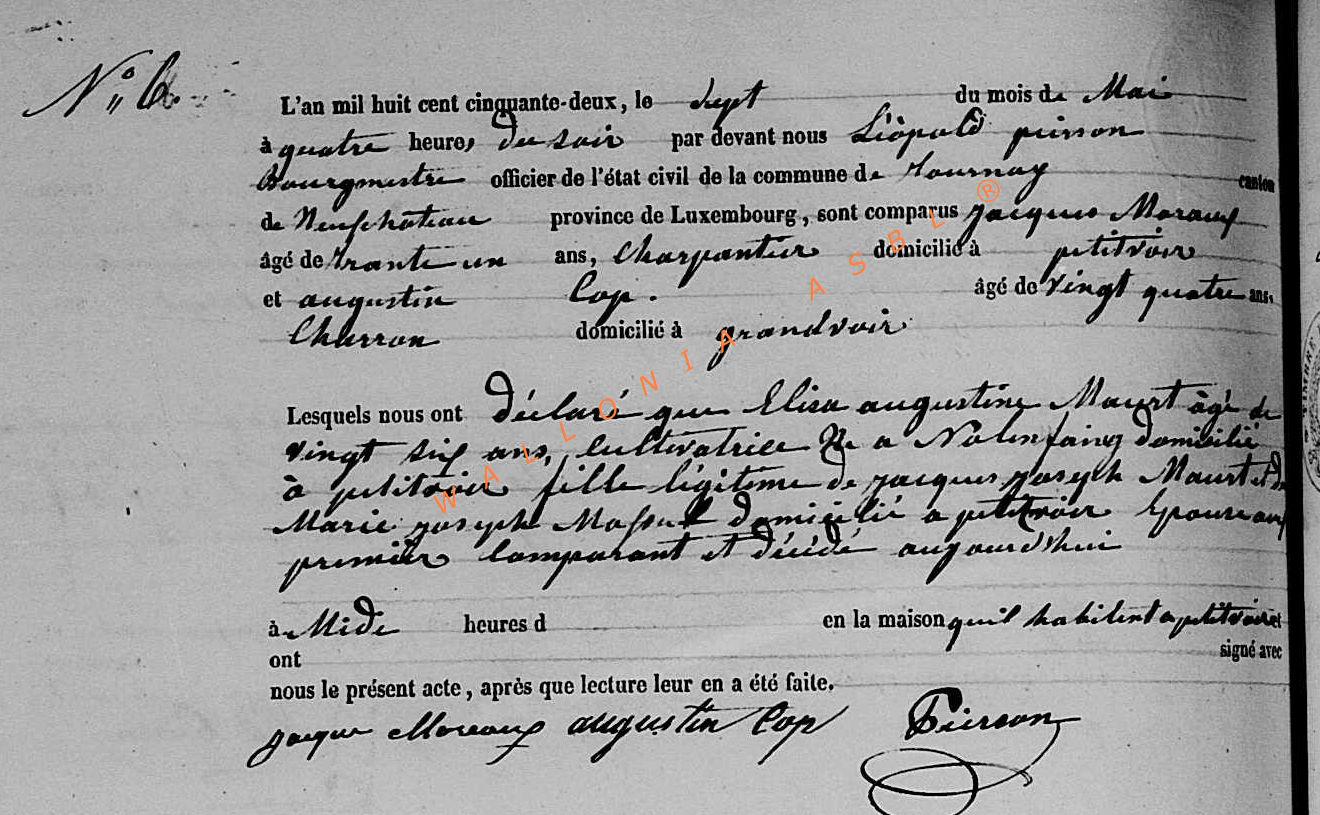 N° 6.
L'an mil huit cent cinquante-deux, le Sept du mois de Mai
à quatre heures du soir par devant nous Léopold pierson
Bourgmestre officier de l'état civil de la commune de Tournay canton
de Neufchateau province de Luxembourg, sont comparus jacques Moraux
âgé de trante un ans, Charpantier domicilié à petitvoir
et augustin Cop. âgé de vingt quatre ans,
Charron domicilié à grandvoir
Lesquels nous ont déclaré que Elisa augustine Maurt âgé de
vingt six ans, cultivatrice Né a Nolinfaing domicilié
à petitvoir fille légitime de jacques joseph Maurt et de
Marie joseph domicilié a petitvoir Epouse au
premier comparant et décédé aujourd'hui
à Midi heures d en la maison qu'il habitent a petitvoir et
ont signé avec
nous le présent acte, après que lecture leur en a été faite.
jacque Moreaux augustin Cop Pierson
WALLONIA ASBL ®